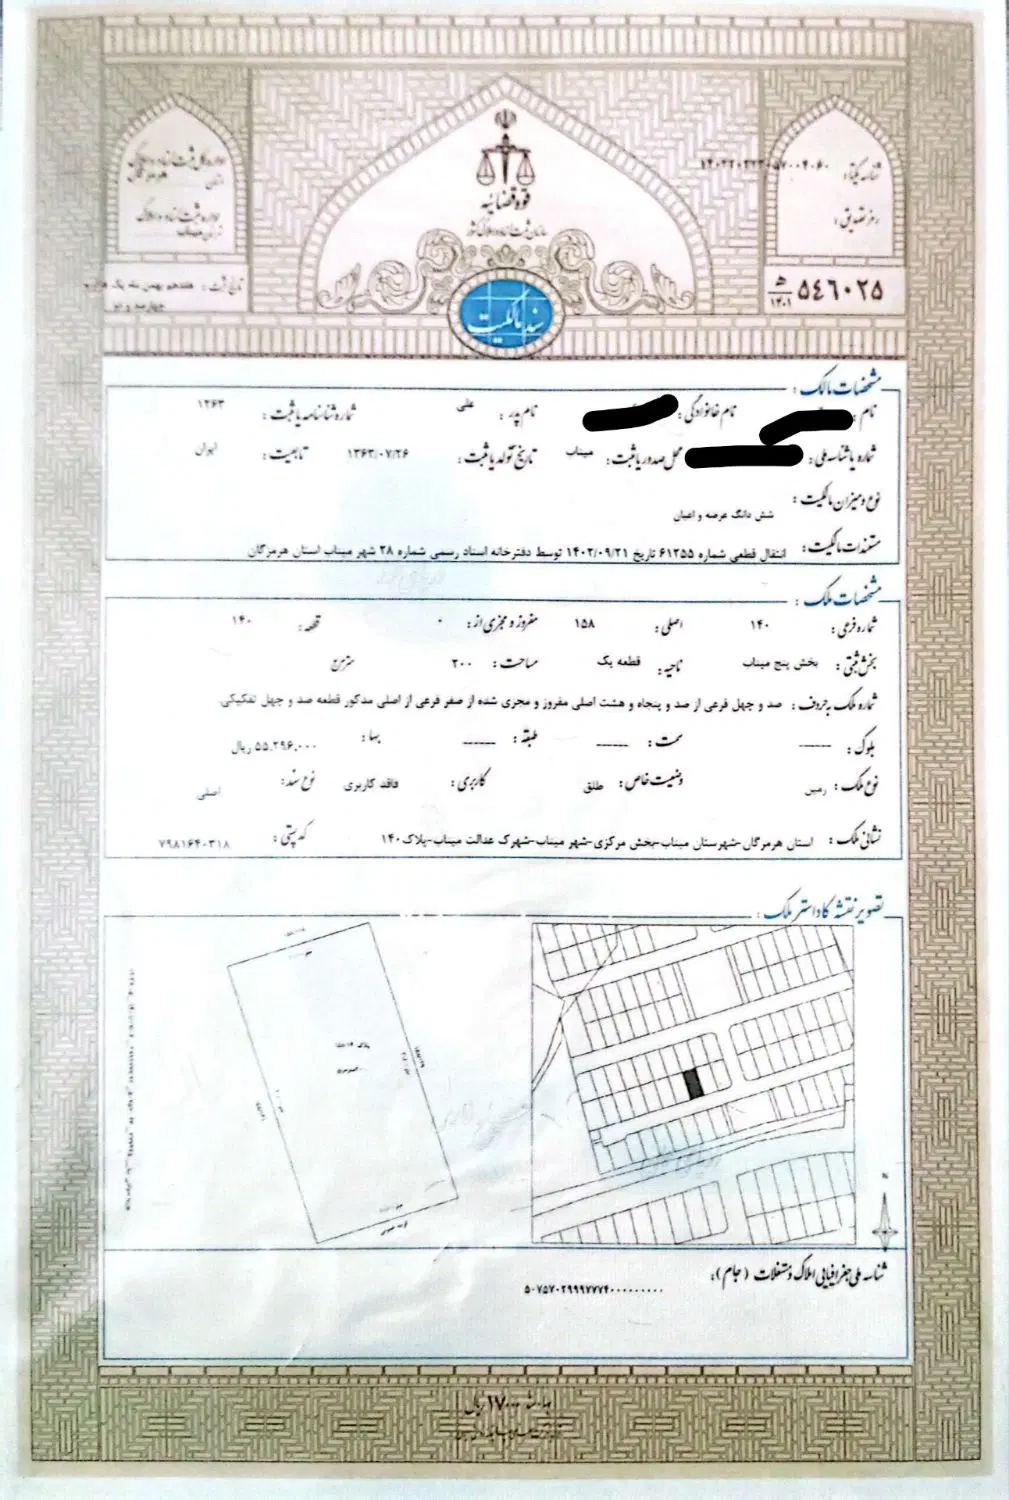 قوه قضائیه
سازمان ثبت اسناد و املاک کشور
اداره کل ثبت اسناد و املاک
استان هرمزگان
اداره ثبت اسناد و املاک
شناسه یکتا:
رمز تصدیق:
تاریخ ثبت: هفدهم بهمن ماه یک هزار و
چهارصد و دو
۵۴۶۰۲۵ ه‍ ۱۴۰۱
سند مالکیت
مشخصات مالک:
نام: نام خانوادگی: نام پدر: علی شماره شناسنامه یا ثبت: ۱۲۶۳
شماره یا شناسه ملی: محل صدور یا ثبت: میناب تاریخ تولد یا ثبت: ۱۳۶۳/۰۷/۲۶ تابعیت: ایران
نوع و میزان مالکیت: شش دانگ عرصه و اعیان
مستندات مالکیت: انتقال قطعی شماره ۶۱۲۵۵ تاریخ ۱۴۰۲/۰۹/۲۱ توسط دفترخانه اسناد رسمی شماره ۲۸ شهر میناب استان هرمزگان
مشخصات ملک:
شماره فرعی: ۱۴۰ اصلی: ۱۵۸ مفروز و مجزی از: ۰ قطعه: ۱۴۰
بخش ثبتی: بخش پنج میناب ناحیه: قطعه یک مساحت: ۲۰۰ مترمربع
شماره ملک به حروف: صد و چهل فرعی از صد و پنجاه و هشت اصلی مفروز و مجزی شده از صفر فرعی از اصلی مذکور قطعه صد و چهل تفکیکی.
بلوک: ------ سمت: ------ طبقه: ------ بها: ۵۵.۲۹۶.۰۰۰ ریال
نوع ملک: زمین وضعیت خاص: طلق کاربری: فاقد کاربری نوع سند: اصلی
نشانی ملک: استان هرمزگان-شهرستان میناب-بخش مرکزی-شهر میناب-شهرک عدالت میناب-پلاک ۱۴۰ کد پستی: ۷۹۸۱۶۴۰۳۱۸
تصویر نقشه کاداستر ملک:
شناسه ملی جغرافیایی املاک و مستغلات (جام):